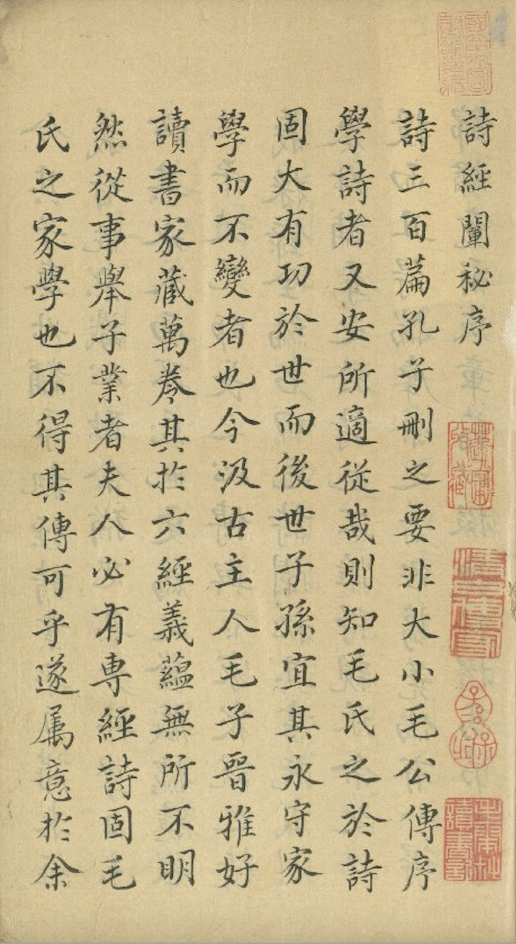 詩經闡秘序
詩三百篇孔子刪之要非大小毛公傳序
學詩者又安所適從哉則知毛氏之於詩
固大有功於世而後世子孫宜其永守家
學而不變者也今汲古主人毛子晉雅好
讀書家藏萬卷其於六經義蘊無所不明
然從事舉子業者夫人必有專經詩固毛
氏之家學也不得其傳可乎遂属意於余